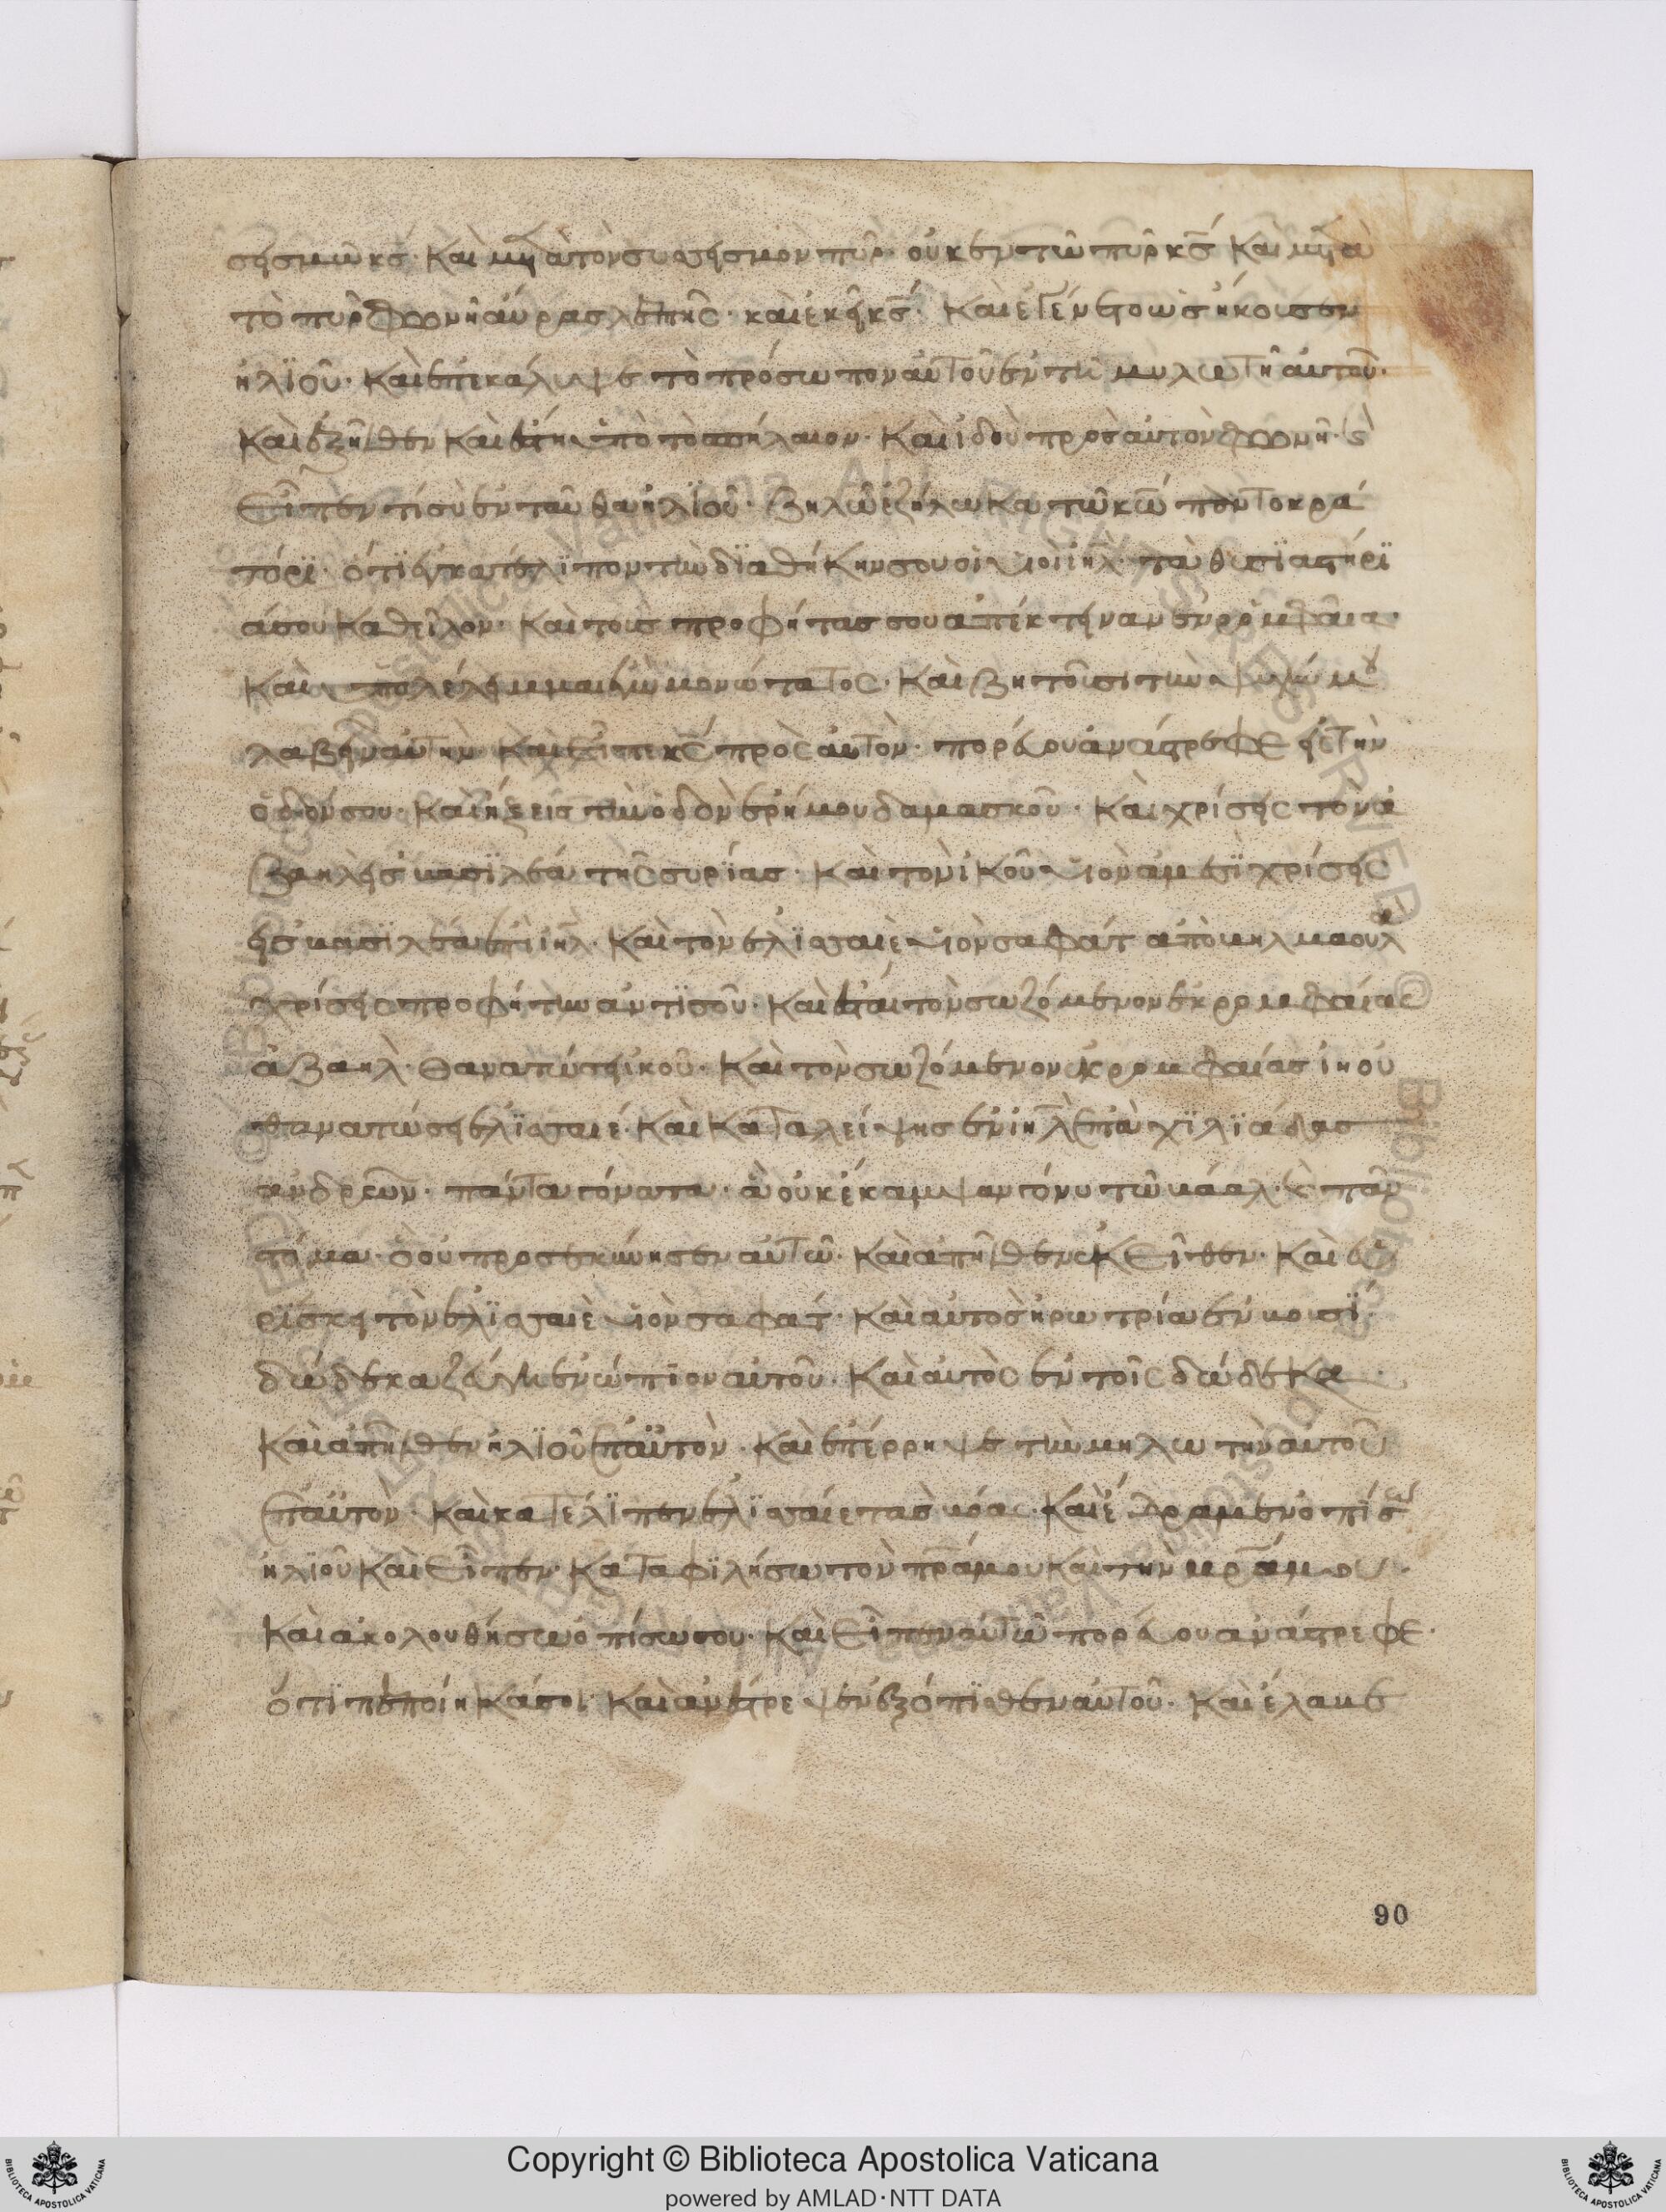 σησμῶ κς́· Καὶ μετὰ τὸν συσησμὸν πῦρ· οὐκ ἐν τῶ πυρὶ κς́ Καὶ μετὰ
τὸ πῦρ φωνὴ αὔρας λεπτῆς· καὶ ἐκῆ κς́· Καὶ ἐγένετο ὡς ἤκουσεν
ηλϊοῦ· Καὶ ἐπεκάλυψε τὸ πρόσωπον αὐτοῦ ἐν τῆ μυλωτῆ αὐτοῦ·
Καὶ ἐξῆλθεν Καὶ ἔστη ὑπὸ τὸ σπήλαιον· Καὶ ἰδοὺ πρὸς αὐτὸν φωνὴ· καὶ
Εἶπεν τί σὺ ἐνταῦθα ηλϊοῦ· Ζηλῶ ἐζήλωκα τῶ κῶ παντοκρά
τορϊ· ὅτϊ ἐγκατέλϊπον τὴν δϊαθήκην σου οἱ υἱοὶ ιηλ· τὰ θυσϊαστήρϊ
ά σου Καθεῖλον· Καὶ τοὺς προφήτας σου ἀπέκτηναν ἐν ρομφαία·
Καὶ ὑπολέλημμαι ἐγὼ μονώτατος· Καὶ ζητοῦσι τὴν ψυχήν μου
λαβῆν αὐτὴν Καὶ Εἶπε κς́ πρὸς αὐτὸν· πορεύου ἀνάστρεφε ἐς τὴν
ὁδόν σου· Καὶ ἥξεις τὴν ὁδὸν ἐρήμου δαμασκοῦ· Καὶ χρίσης τὸν ἀ
ζαὴλ ἐς βασϊλέα τῆς συρίας· Καὶ τὸν ἰκοῦ υἱὸν ἀμεσϊ χρίσης
ἐς βασϊλέα ἐπὶ ιηλ· Καὶ τὸν ἐλϊσαιὲ υἱὸν σαφάτ ἀπὸ μηλμαουλ
χρίσης προφήτην ἀντϊ σοῦ· Καὶ ἔσται τὸν σωζόμενον ἐκ ρομφαίας
ἀζαὴλ· θανατώση ἰκοῦ· Καὶ τὸν σωζόμενον ἐκ ρομφαίας ἰκοῦ
θανατώση ἐλϊσαιέ· Καὶ Καταλείψης ἐν ιηλ ἑπτὰ χϊλϊάδας
ἀνδρῶν· πάντα γόνατα· ἃ οὐκ ἔκαμψαν γόνυ τῶ βάαλ· καὶ πᾶν
στόμα· ὃ οὐ προσεκύνησεν αὐτῶ· Καὶ ἀπῆλθεν ἐκεῖθεν· Καὶ εὑ
ρϊσκη τὸν ἐλϊσαιὲ υἱὸν σαφάτ· Καὶ αὐτὸς ἠρωτρία ἐν βουσϊ·
δώδεκα ζεύγη ἐνώπϊον αὐτοῦ· Καὶ αὐτὸς ἐν τοῖς δώδεκα·
Καὶ ἀπῆλθεν ηλϊοῦ ἐπ' αὐτὸν· Καὶ ἐπέρρηψε τὴν μηλωτὴν αὐτοῦ
ἐπ' αὐτὸν· Καὶ κατέλϊπεν ἐλϊσαιέ τὰς βόας· Καὶ ἔδραμεν ὀπίσω
ηλϊοῦ Καὶ Εἶπεν· Καταφϊλήσω τὸν πρά μου Καὶ τὴν μρά μου·
Καὶ ἀκολουθήσω ὀπίσω σου· Καὶ Εἶπεν αὐτῶ πορεύου ἀνάστρεφε·
ὅτϊ πεποίηκά σοι· Καὶ ἀνέστρεψεν ἐξόπϊσθεν αὐτοῦ· Καὶ ἔλαβε
90
Copyright © Biblioteca Apostolica Vaticana
powered by AMLAD·NTT DATA